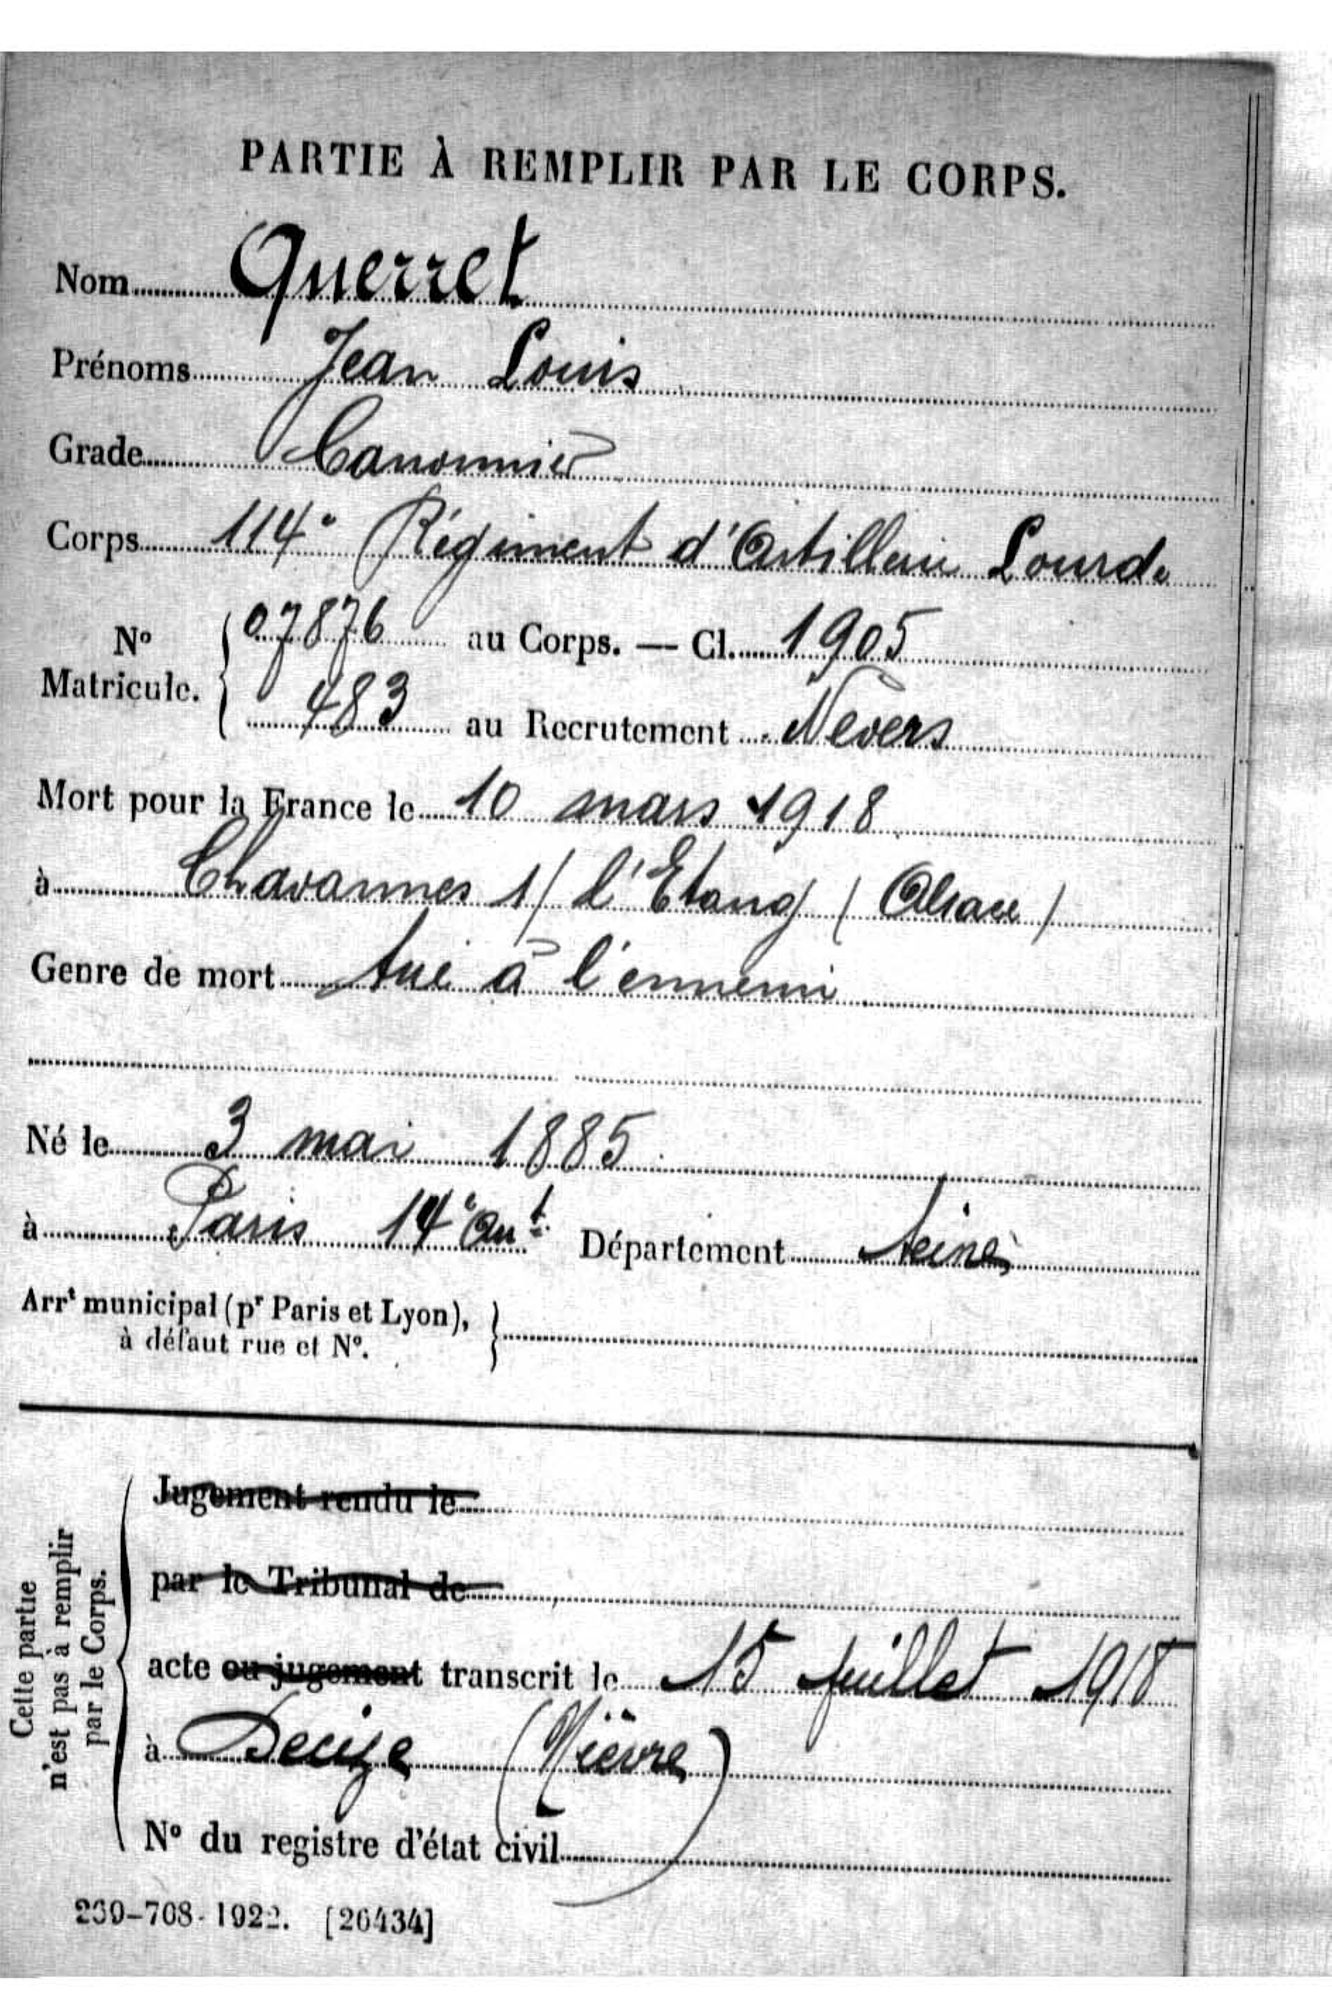 PARTIE À REMPLIR PAR LE CORPS.
Nom Querret
Prénoms Jean Louis
Grade Canonnier
Corps 114e Régiment d'Artillerie Lourde
No Matricule. 07876 au Corps. — Cl. 1905
483 au Recrutement Nevers
Mort pour la France le 10 mars 1918
à Chavannes s/ l'Etang (Alsace)
Genre de mort tué à l'ennemi
Né le 3 mai 1885
à Paris 14e Arrt Département Seine
Arrt municipal (pr Paris et Lyon),
à défaut rue et No.
Cette partie
n'est pas à remplir
par le Corps.
Jugement rendu le
par le Tribunal de
acte ou jugement transcrit le 15 juillet 1918
à Decize (Nièvre)
No du registre d'état civil
239-708-1922. [26434]